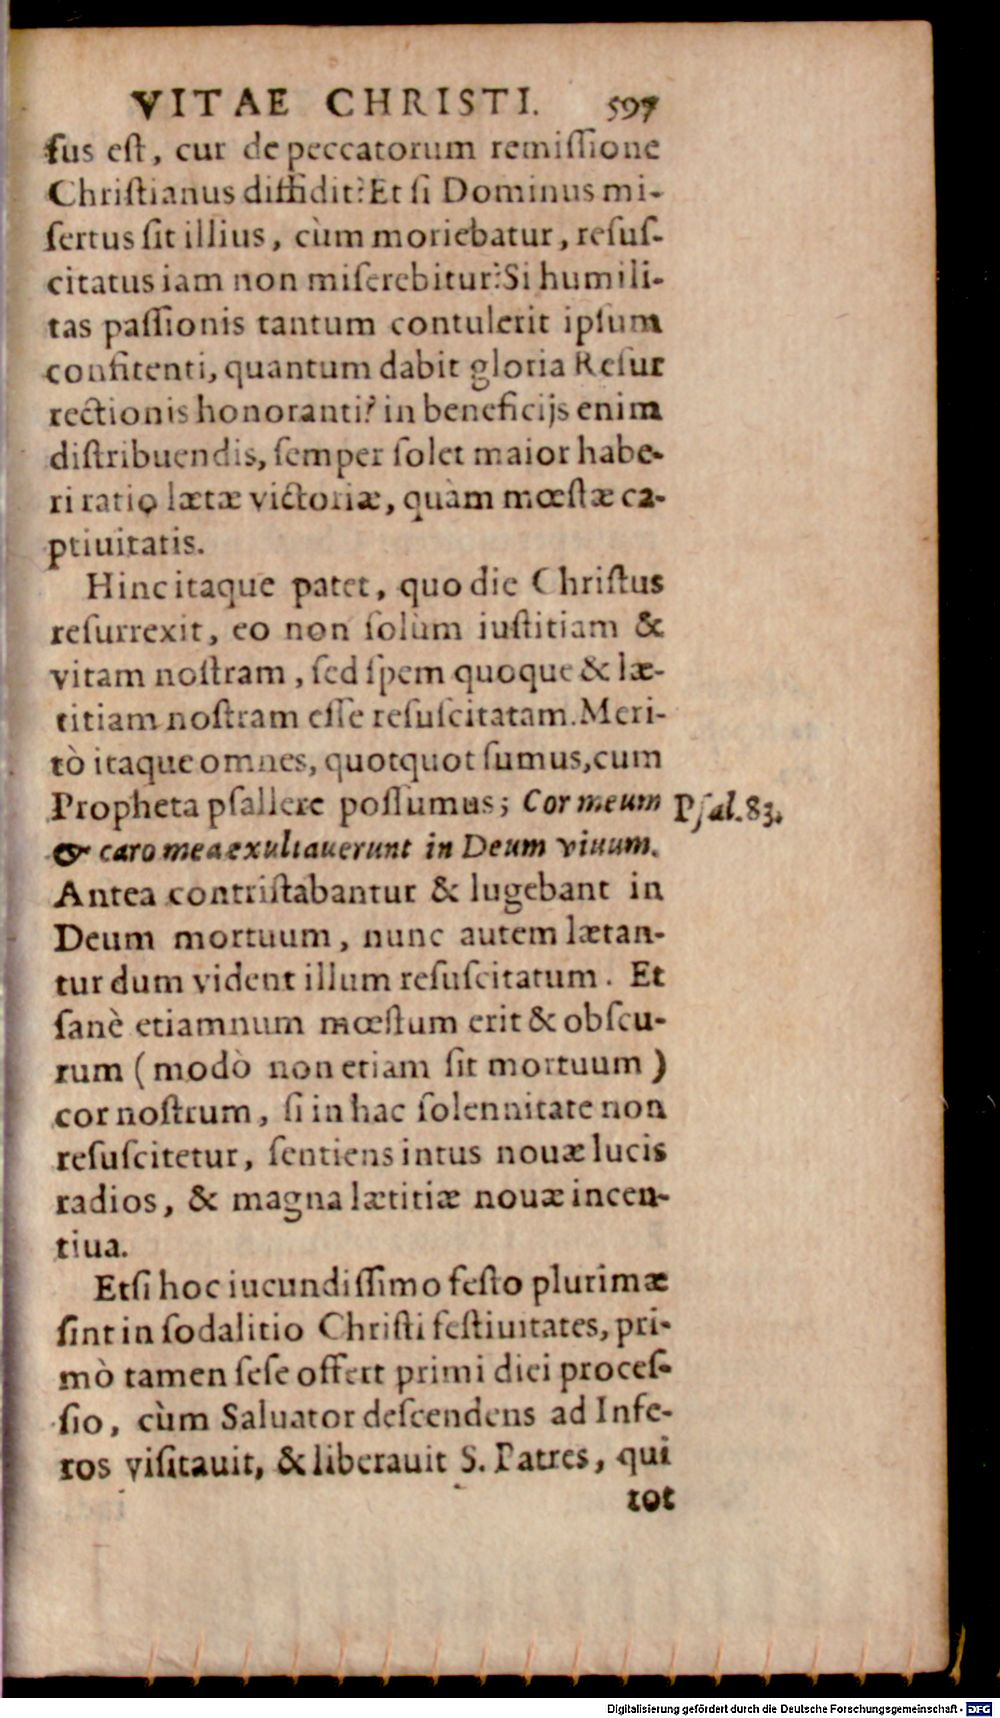 VITAE CHRISTI. 597
ſus eſt, cur de peccatorum remiſſione
Chriſtianus diffidit? Et ſi Dominus mi-
ſertus ſit illius, cùm moriebatur, reſuſ-
citatus iam non miſerebitur? Si humili-
tas paſſionis tantum contulerit ipſum
confitenti, quantum dabit gloria Reſur
rectionis honoranti? in beneficijs enim
diſtribuendis, ſemper ſolet maior habe-
ri ratio lætæ victoriæ, quàm mœſtæ ca-
ptiuitatis.
Hinc itaque patet, quo die Chriſtus
reſurrexit, eo non ſolùm iuſtitiam &
vitam noſtram, ſed ſpem quoque & læ-
titiam noſtram eſſe reſuſcitatam. Meri-
tò itaque omnes, quotquot ſumus, cum
Propheta pſallere poſſumus; Cor meum Pſal. 83.
& caro mea exultauerunt in Deum viuum.
Antea contriſtabantur & lugebant in
Deum mortuum, nunc autem lætan-
tur dum vident illum reſuſcitatum. Et
ſanè etiamnum mœſtum erit & obſcu-
rum (modò non etiam ſit mortuum)
cor noſtrum, ſi in hac ſolennitate non
reſuſcitetur, ſentiens intus nouæ lucis
radios, & magna lætitiæ nouæ incen-
tiua.
Etſi hoc iucundiſſimo feſto plurimæ
ſint in ſodalitio Chriſti feſtiuitates, pri-
mò tamen ſeſe offert primi diei proceſ-
ſio, cùm Saluator deſcendens ad Infe-
ros viſitauit, & liberauit S. Patres, qui
tot
Digitalisierung gefördert durch die Deutsche Forschungsgemeinschaft - DFG